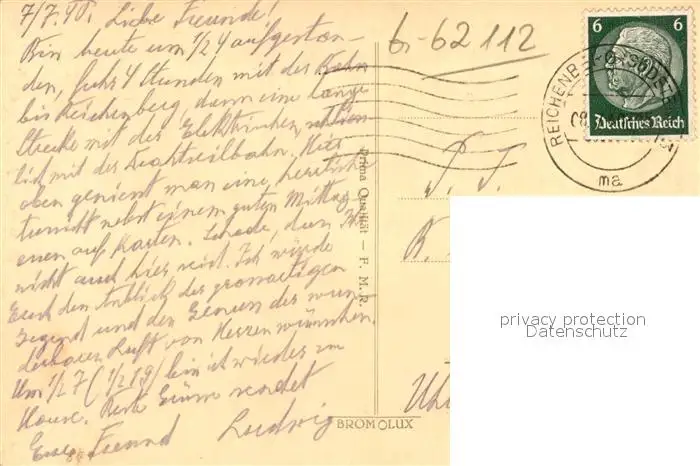 7/7.40. Liebe Freunde!
Bin heute um 1/2 4 aufgestan-
den, fuhr 4 Stunden mit der Bahn
bis Reichenberg, dann eine lange
Strecke mit der Elektrischen, schliess-
lich mit der Drahtseilbahn. Hier
oben geniesst man eine herrliche
Fernsicht nebst einem guten Mittag-
essen auf Karten. Schade, dass Ihr
nicht auch hier seid. Ich würde
Euch den Anblick der grossartigen
Gegend und den Genuss der wun-
derbaren Luft von Herzen wünschen.
Um 1/2 7 (1/2 19) bin ich wieder zu
Hause. Beste Grüsse sendet
Euer Freund Ludwig
6-62112
Prima Qualität — F. M. R.
BROMOLUX
6 6
Deutsches Reich
REICHENBE
ma
P. T.
privacy protection
Datenschutz